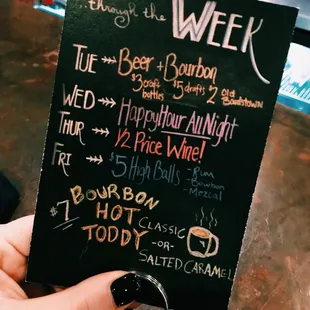 ...through the WEEK...
TUE Beer + Bourbon
$3 craft bottles $5 drafts $2 Old Bardstown
WED HappyHour All Night
THUR 1/2 Price Wine!
FRI $5 High Balls - Rum
- Bourbon
- Mezcal
$7 BOURBON
HOT
TODDY
CLASSIC
-OR-
SALTED CARAMEL